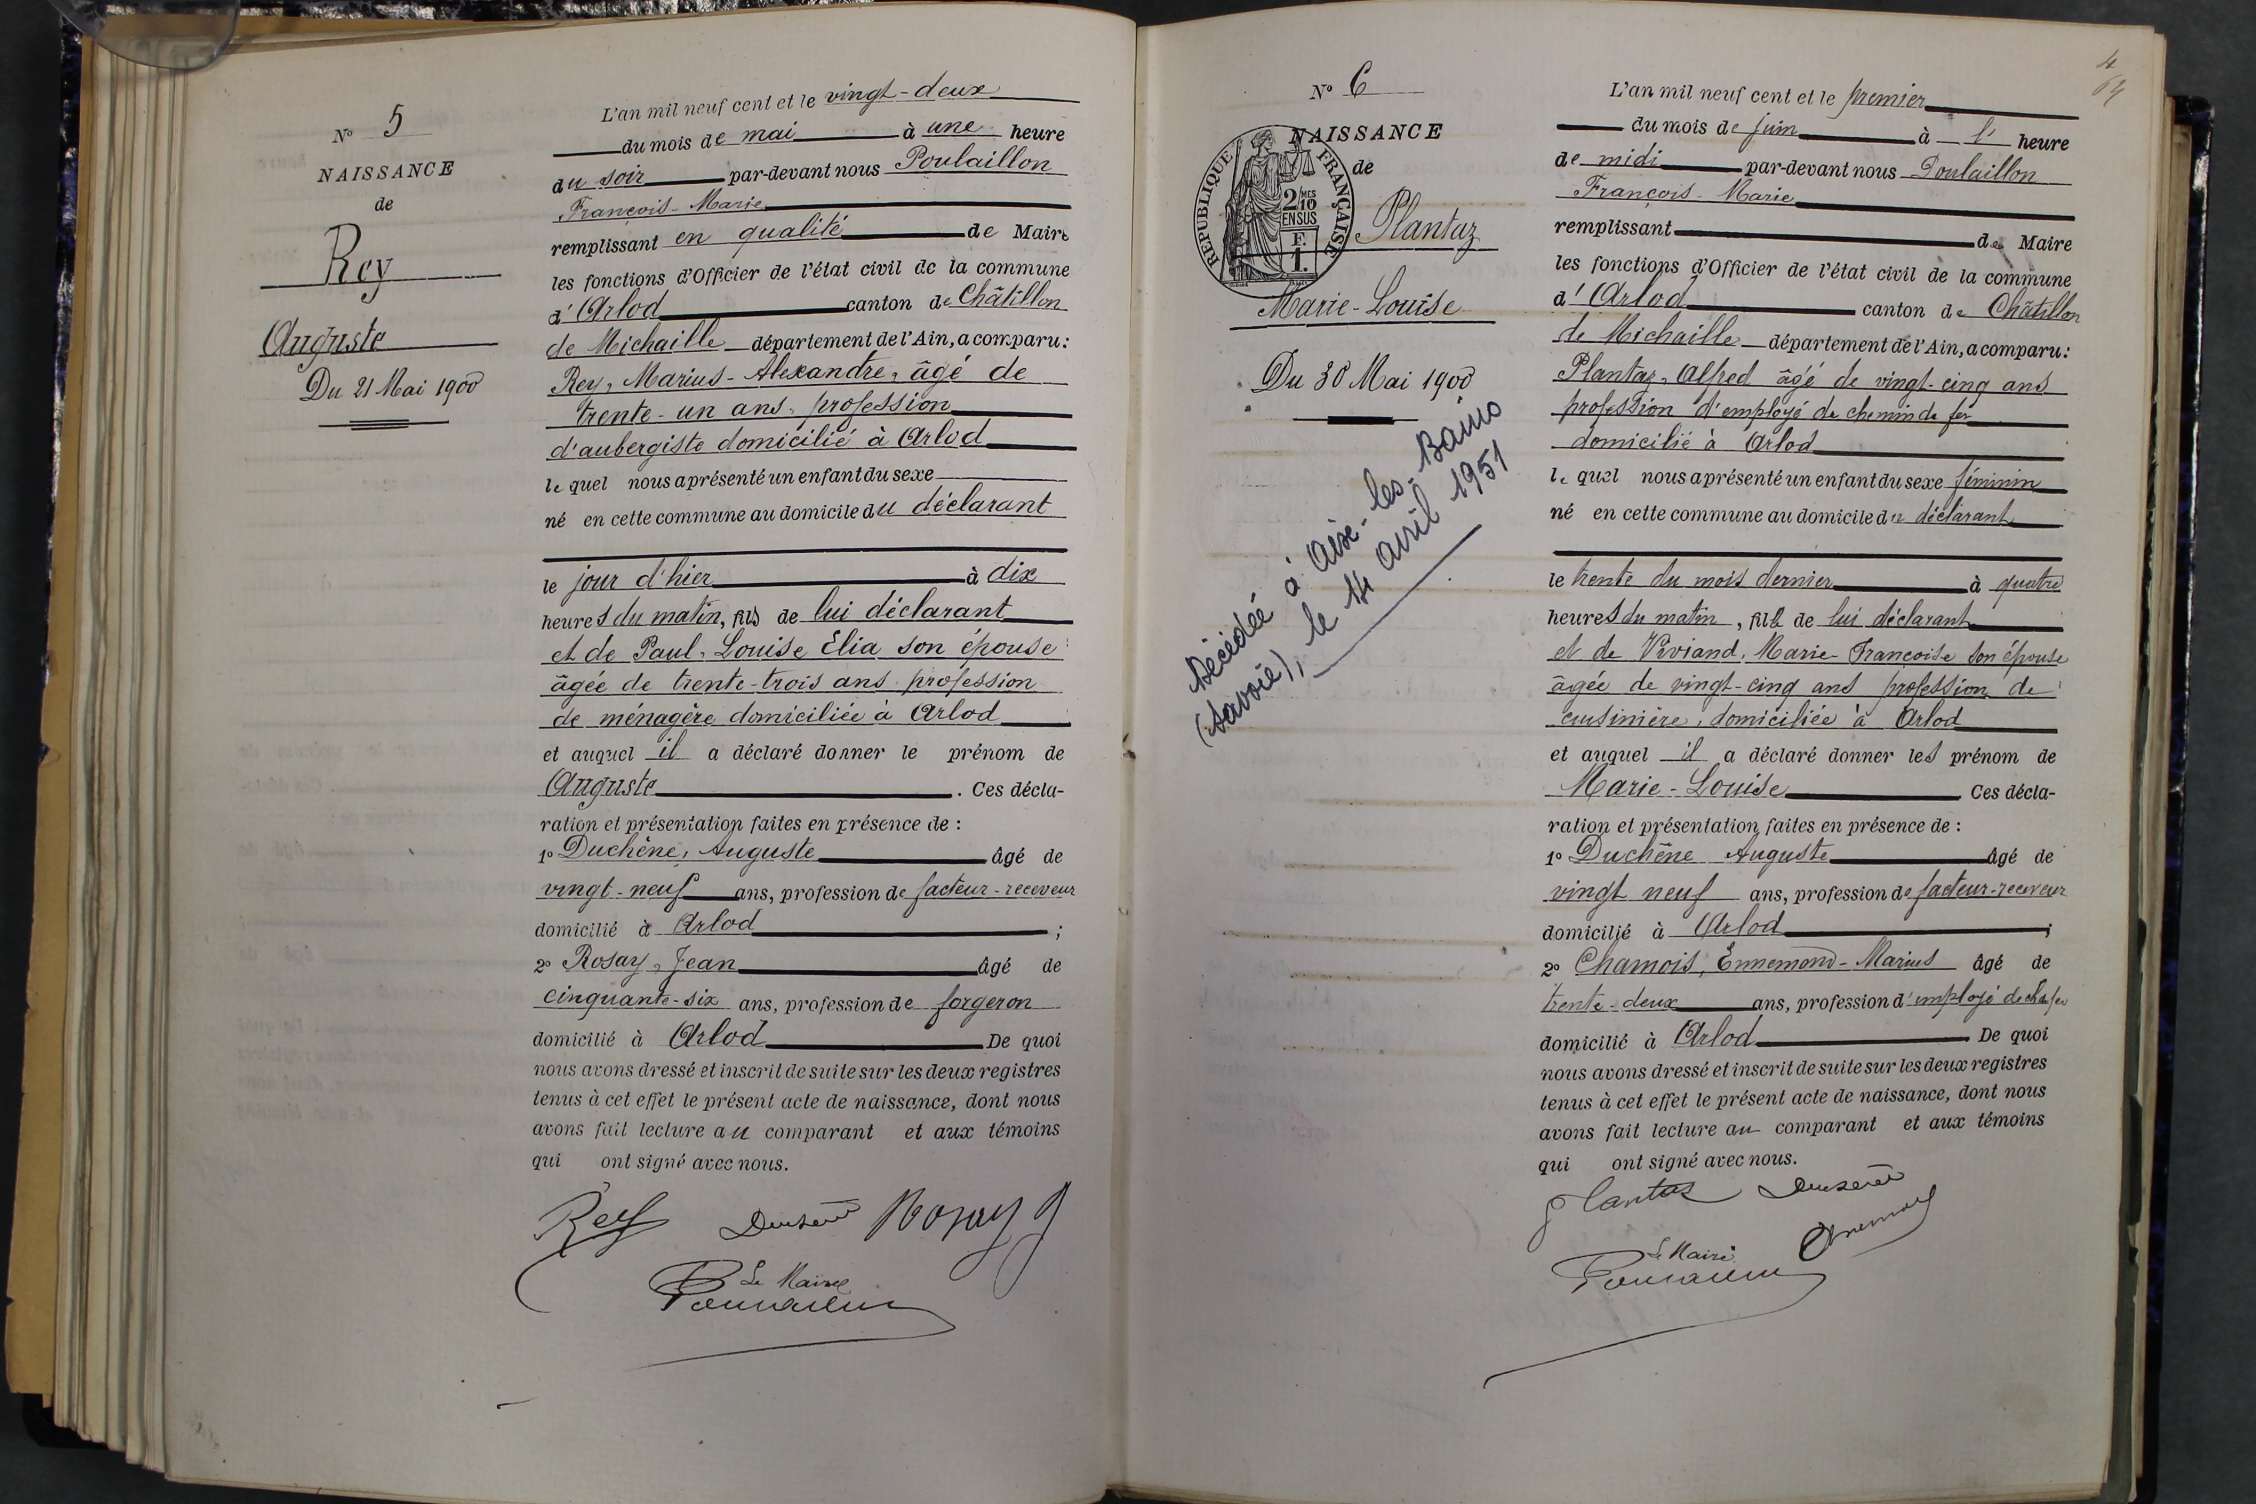 N° 5
NAISSANCE
de
Rey
Auguste
Du 21 Mai 1900
L'an mil neuf cent et le vingt-deux
du mois de mai à une heure
du soir par-devant nous Poulaillon
François-Marie
remplissant en qualité de Maire
les fonctions d'Officier de l'état civil de la commune
d'Arlod canton de Châtillon
de Michaille département de l'Ain, a comparu:
Rey, Marius-Alexandre, âgé de
trente-un ans, profession
d'aubergiste domicilié à Arlod
lequel nous a présenté un enfant du sexe
né en cette commune au domicile du déclarant
le jour d'hier à dix
heures du matin, fils de lui déclarant
et de Paul, Louise Elia son épouse
âgée de trente-trois ans profession
de ménagère domiciliée à Arlod
et auquel il a déclaré donner le prénom de
Auguste. Ces décla-
ration et présentation faites en présence de:
1° Duchêne, Auguste âgé de
vingt-neuf ans, profession de facteur-receveur
domicilié à Arlod;
2° Rosay, Jean âgé de
cinquante-six ans, profession de forgeron
domicilié à Arlod De quoi
nous avons dressé et inscrit de suite sur les deux registres
tenus à cet effet le présent acte de naissance, dont nous
avons fait lecture au comparant et aux témoins
qui ont signé avec nous.
Rey Rosay
Le Maire
4
64
N° 6
NAISSANCE
de
REPUBLIQUE FRANÇAISE
2 MES 10
EN SUS
F.
1.
Plantaz
Marie-Louise
Du 30 Mai 1900
Décédée à Aix-les-Bains
(Savoie), le 14 avril 1951
L'an mil neuf cent et le premier
du mois de juin à l' heure
de midi par-devant nous Poulaillon
François-Marie
remplissant de Maire
les fonctions d'Officier de l'état civil de la commune
d'Arlod canton de Châtillon
de Michaille département de l'Ain, a comparu:
Plantaz, Alfred âgé de vingt-cinq ans
profession d'employé de chemin de fer
domicilié à Arlod
lequel nous a présenté un enfant du sexe féminin
né en cette commune au domicile du déclarant
le trente du mois dernier à quatre
heures du matin, fille de lui déclarant
et de Viviand, Marie-Françoise son épouse
âgée de vingt-cinq ans profession de
cuisinière, domiciliée à Arlod
et auquel il a déclaré donner les prénom de
Marie-Louise Ces décla-
ration et présentation faites en présence de:
1° Duchêne Auguste âgé de
vingt neuf ans, profession de facteur-receveur
domicilié à Arlod;
2° Chamois, Ennemond-Marius âgé de
trente-deux ans, profession d'employé de ch. de fer
domicilié à Arlod De quoi
nous avons dressé et inscrit de suite sur les deux registres
tenus à cet effet le présent acte de naissance, dont nous
avons fait lecture au comparant et aux témoins
qui ont signé avec nous.
Plantaz
Le Maire